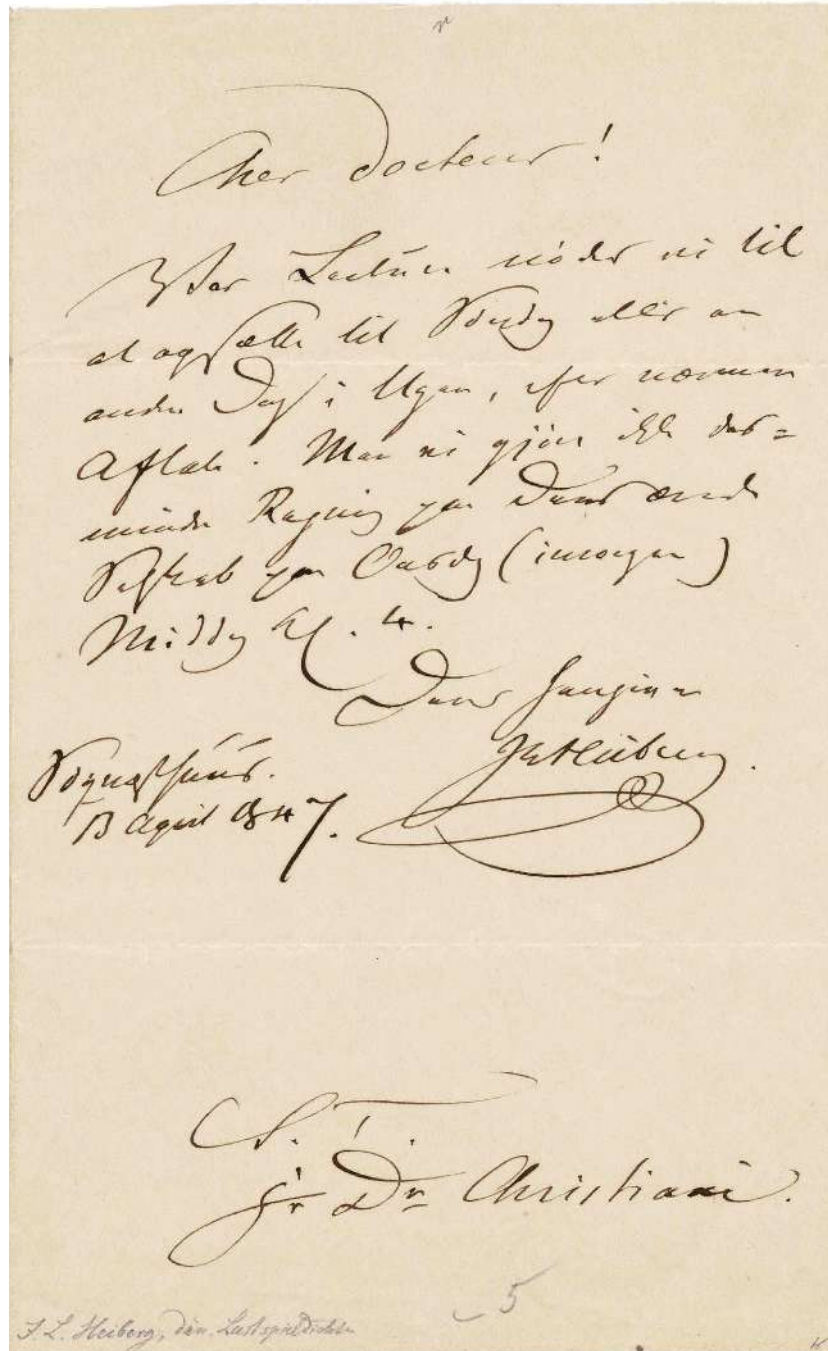 Cher Docteur!
Vor Lecture nöder vi til
at opsætte til Söndag eller en
anden Dag i Ugen, efter nærmere
Aftale. Men vi gjöre ikke des=
mindre Regning paa Deres ærede
Selskab paa Onsdag (imorgen)
Middag Kl. 4.
Deres hengivne
JLHeiberg.
13 April 1847.
S. T.
Hr Dr Christiani.
5
J. L. Heiberg, dän. Lustspieldichter